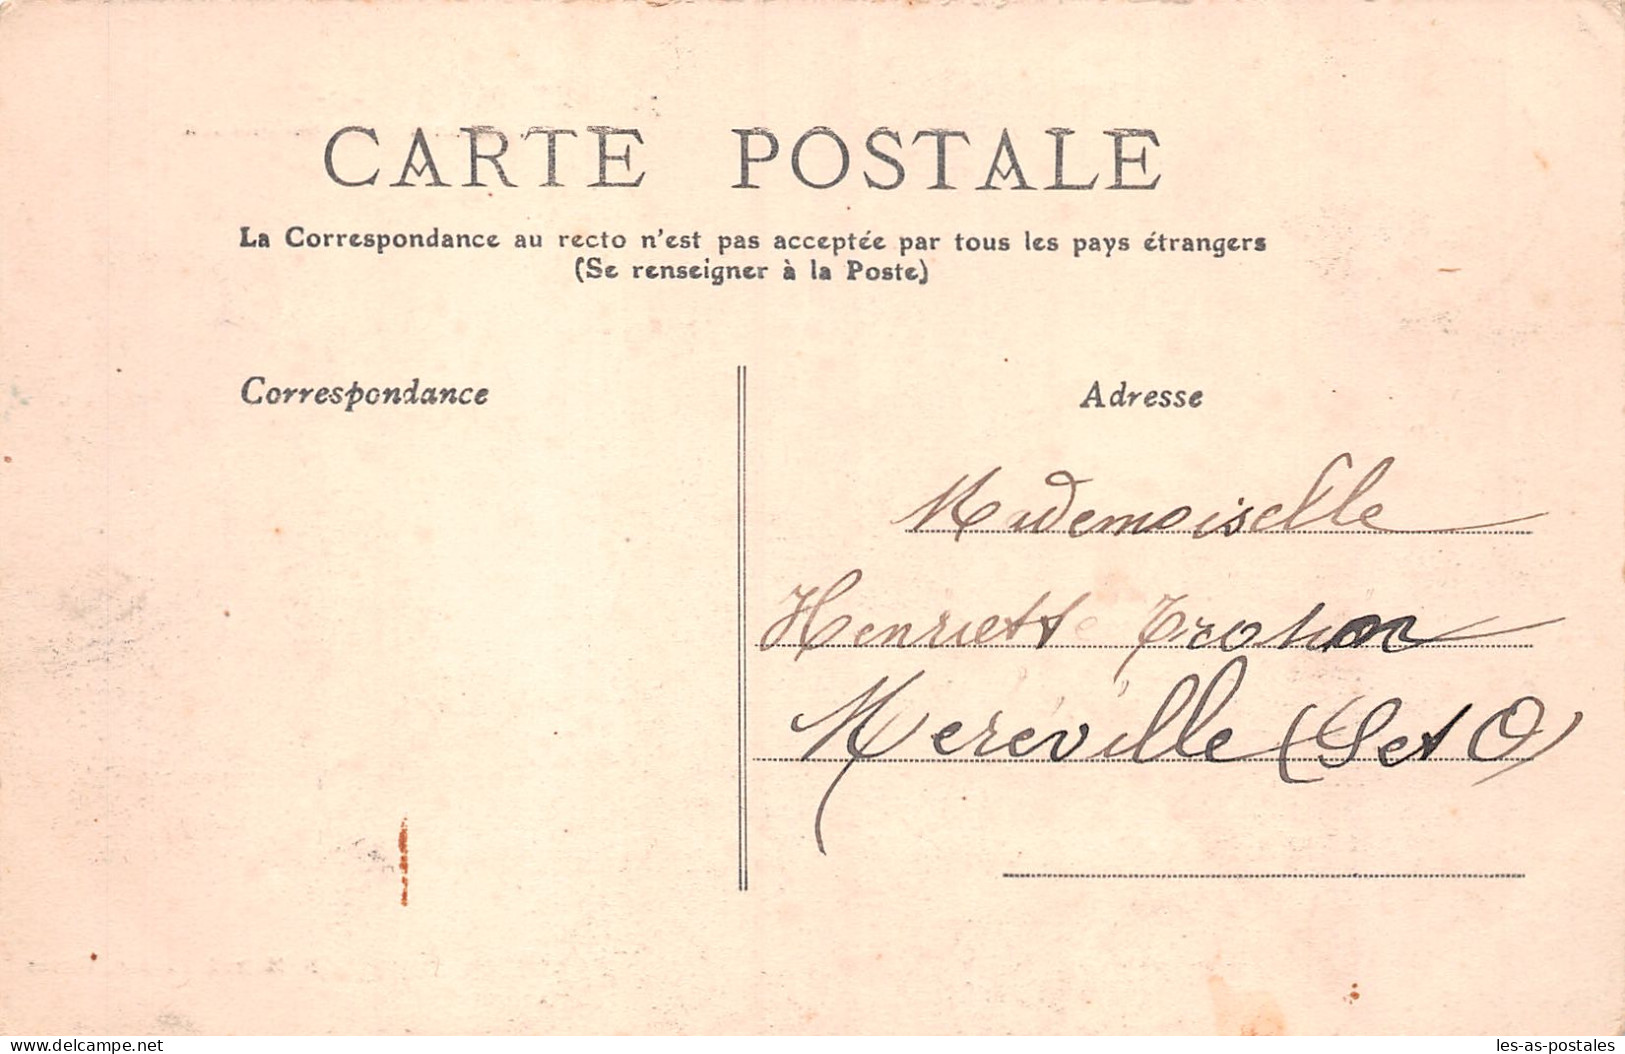 CARTE POSTALE
La Correspondance au recto n'est pas acceptée par tous les pays étrangers
(Se renseigner à la Poste)
Correspondance
Adresse
Mademoiselle
Henriette
Mereville (S et O)
www.delcampe.net
les-as-postales